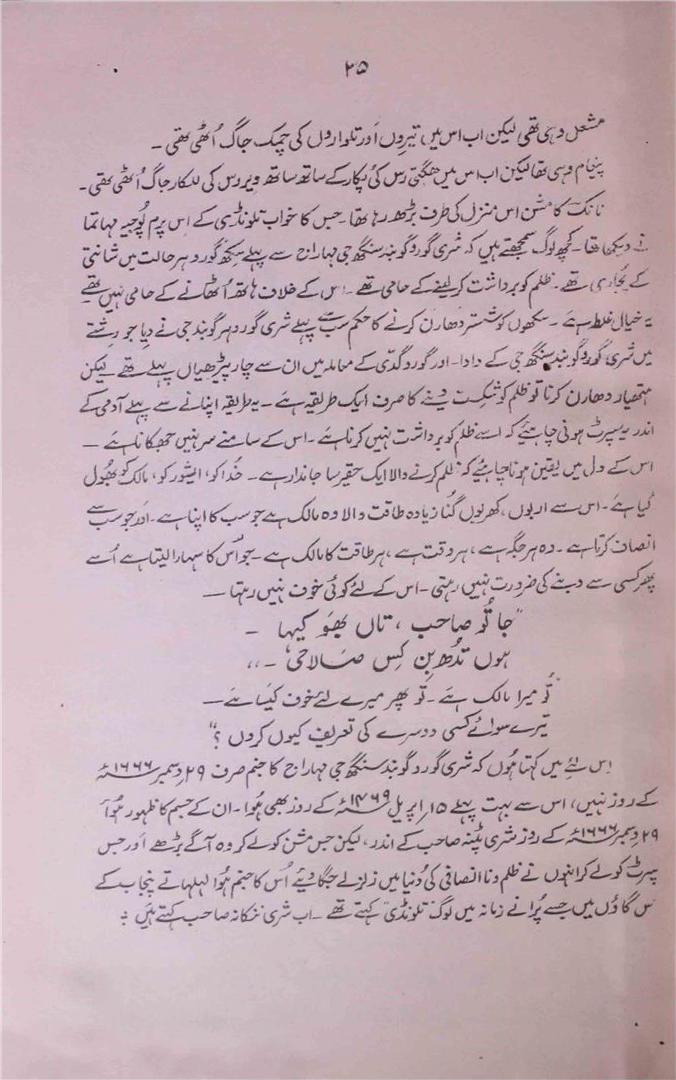 ۲۵
مشعل وہی تھی لیکن اب اس میں تیروں اَور تلواروں کی چمک جاگ اُٹھی تھی ۔
پیغام وہی تھا لیکن اب اس میں بھگتی رس کی پکار کے ساتھ ساتھ ویر رس کی للکار جاگ اُٹھی تھی۔
نانک کا مشن اس منزل کی طرف بڑھ رہا تھا۔ جس کا خواب تلونڈی کے اس پرم پُوجیہ مہاتما
نے دیکھا تھا۔ کچھ لوگ سمجھتے ہیں کہ شری گورو گوبند سنگھ جی مہاراج سے پہلے سکھ گورو ہر حالت میں شانتی
کے پُجاری تھے۔ ظلم کو برداشت کر لینے کے حامی تھے ۔ اس کے خلاف ہاتھ اُٹھانے کے حامی نہیں تھے
یہ خیال غلط ہے۔ سکھوں کو شستر دھارن کرنے کا حکم سب سے پہلے شری گورو ہر گوبند جی نے دیا جو رشتے
میں شری گورو گوبند سنگھ جی کے دادا۔ اور گورو گدّی کے معاملہ میں ان سے چار پیڑھیاں پہلے تھے لیکن
ہتھیار دھارن کرنا تو ظلم کو شکست دینے کا صرف ایک طریقہ ہے ۔ یہ طریقہ اپنانے سے پہلے آدمی کے
اندر یہ سپرٹ ہونی چاہئیے کہ اسے ظلم کو برداشت نہیں کرنا ہے ۔ اس کے سامنے سر نہیں جھکانا ہے ۔
اس کے دل میں یقین ہونا چاہئیے کہ ظلم کرنے والا ایک حقیر سا جاندار ہے ۔ خُدا کو، ایشور کو، مالک کو بھُول
گیا ہے ۔ اس سے اربوں، کھربوں گُنا زیادہ طاقت والا وہ مالک ہے جو سب کا اپنا ہے ۔ اَور جو سب سے
انصاف کرتا ہے ۔ وہ ہر جگہ ہے ، ہر وقت ہے ، ہر طاقت کا مالک ہے ۔ جو اُس کا سہارا لیتا ہے اُسے
پھر کسی سے دبنے کی ضرورت نہیں رہتی ۔ اس کے لئے کوئی خوف نہیں رہتا ۔
”جا تُو صاحب ، تاں بھَو کیہا ۔
ہوں تُدھ بِن کِس صالاحی ۔“
”تُو میرا مالک ہے ۔ تو پھر میرے لئے خوف کیسا ہے ۔
تیرے سوائے کسی دوسرے کی تعریف کیوں کروں ؟“
اِس لئے میں کہتا ہُوں کہ شری گورو گوبند سنگھ جی مہاراج کا جنم صرف ۲۹ دسمبر ۱۶۶۶ء
کے روز نہیں، اس سے بہت پہلے ۱۵ اپریل ۱۴۶۹ء کے روز بھی ہُوا ۔ ان کے جسم کا ظہور ہُوا
۲۹ دسمبر ۱۶۶۶ء کے روز شری پٹنہ صاحب کے اندر، لیکن جس مشن کو لے کر وہ آگے بڑھے اَور جس
سپرٹ کو لے کر انہوں نے ظلم و نا انصافی کی دُنیا میں زلزلے جگا دیئے اُس کا جنم ہُوا لہلہاتے پنجاب کے
اس گاؤں میں جسے پُرانے زمانہ میں لوگ ”تلونڈی“ کہتے تھے ۔ اب شری ننکانہ صاحب کہتے ہیں :